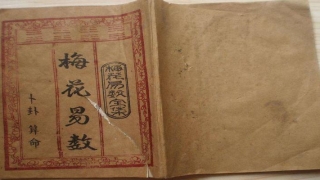 梅花易数
梅花易数全集
卜卦 算命